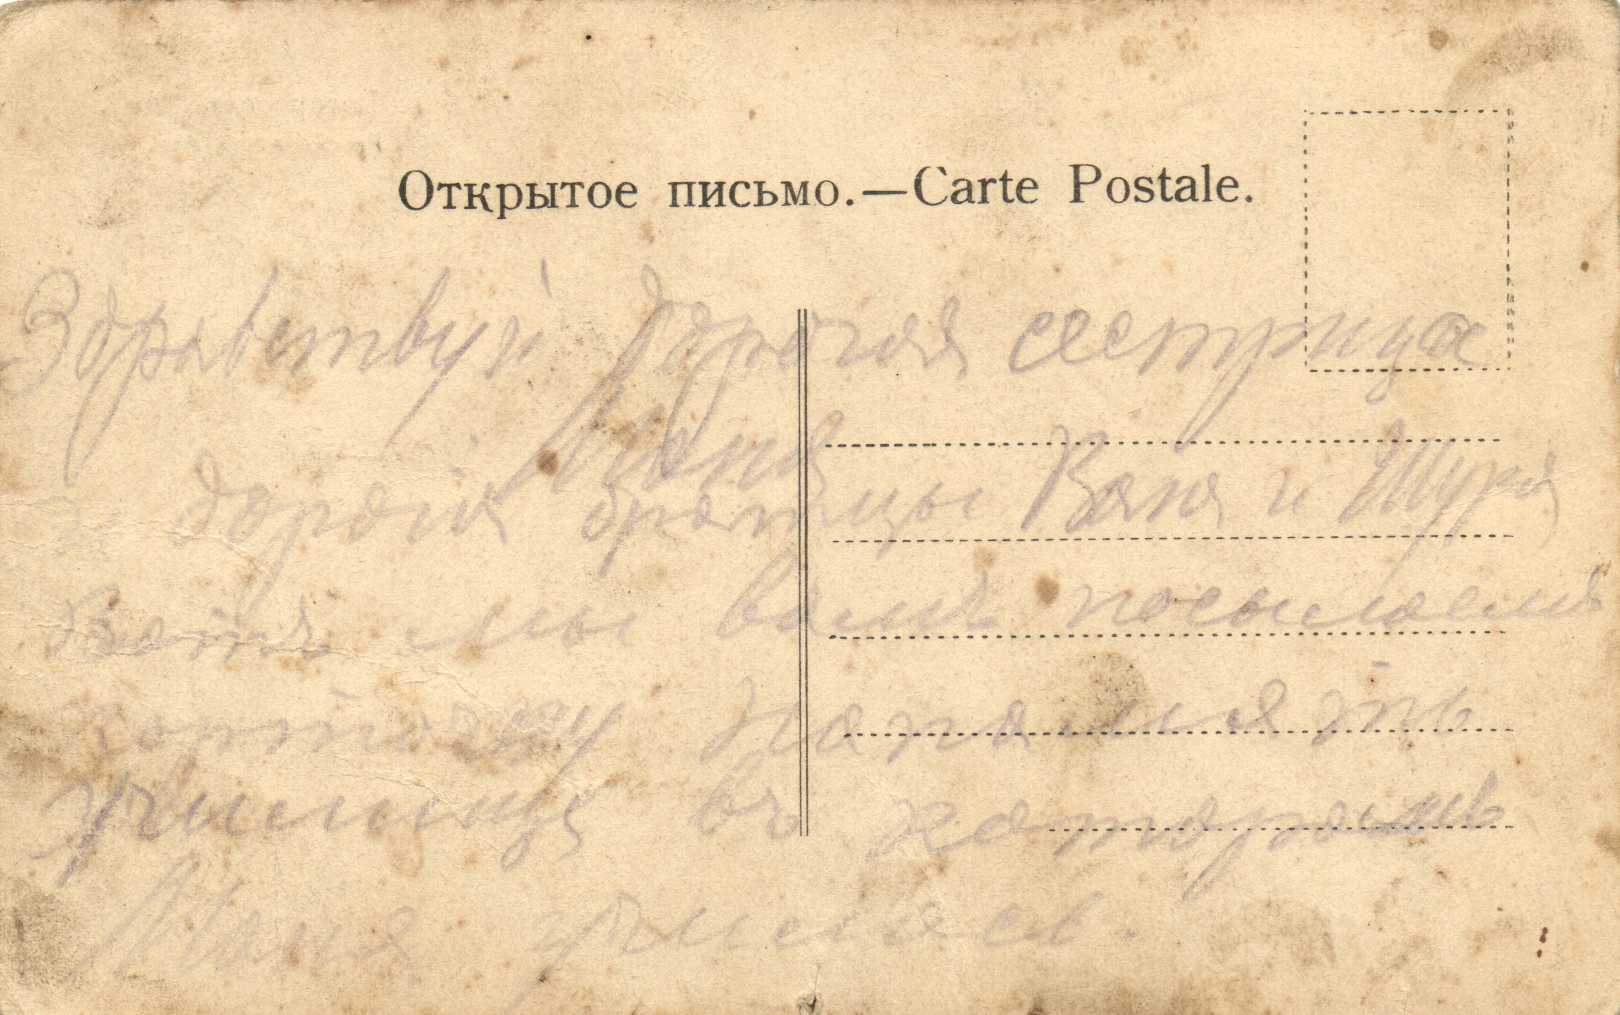 Открытое письмо.—Carte Postale.
Здравствуй дорогая сестрица
Маня
дорогія братцы Ваня и Шура
мы вамъ посылаемъ
карточку на память
училище въ которомъ
Маня училась.